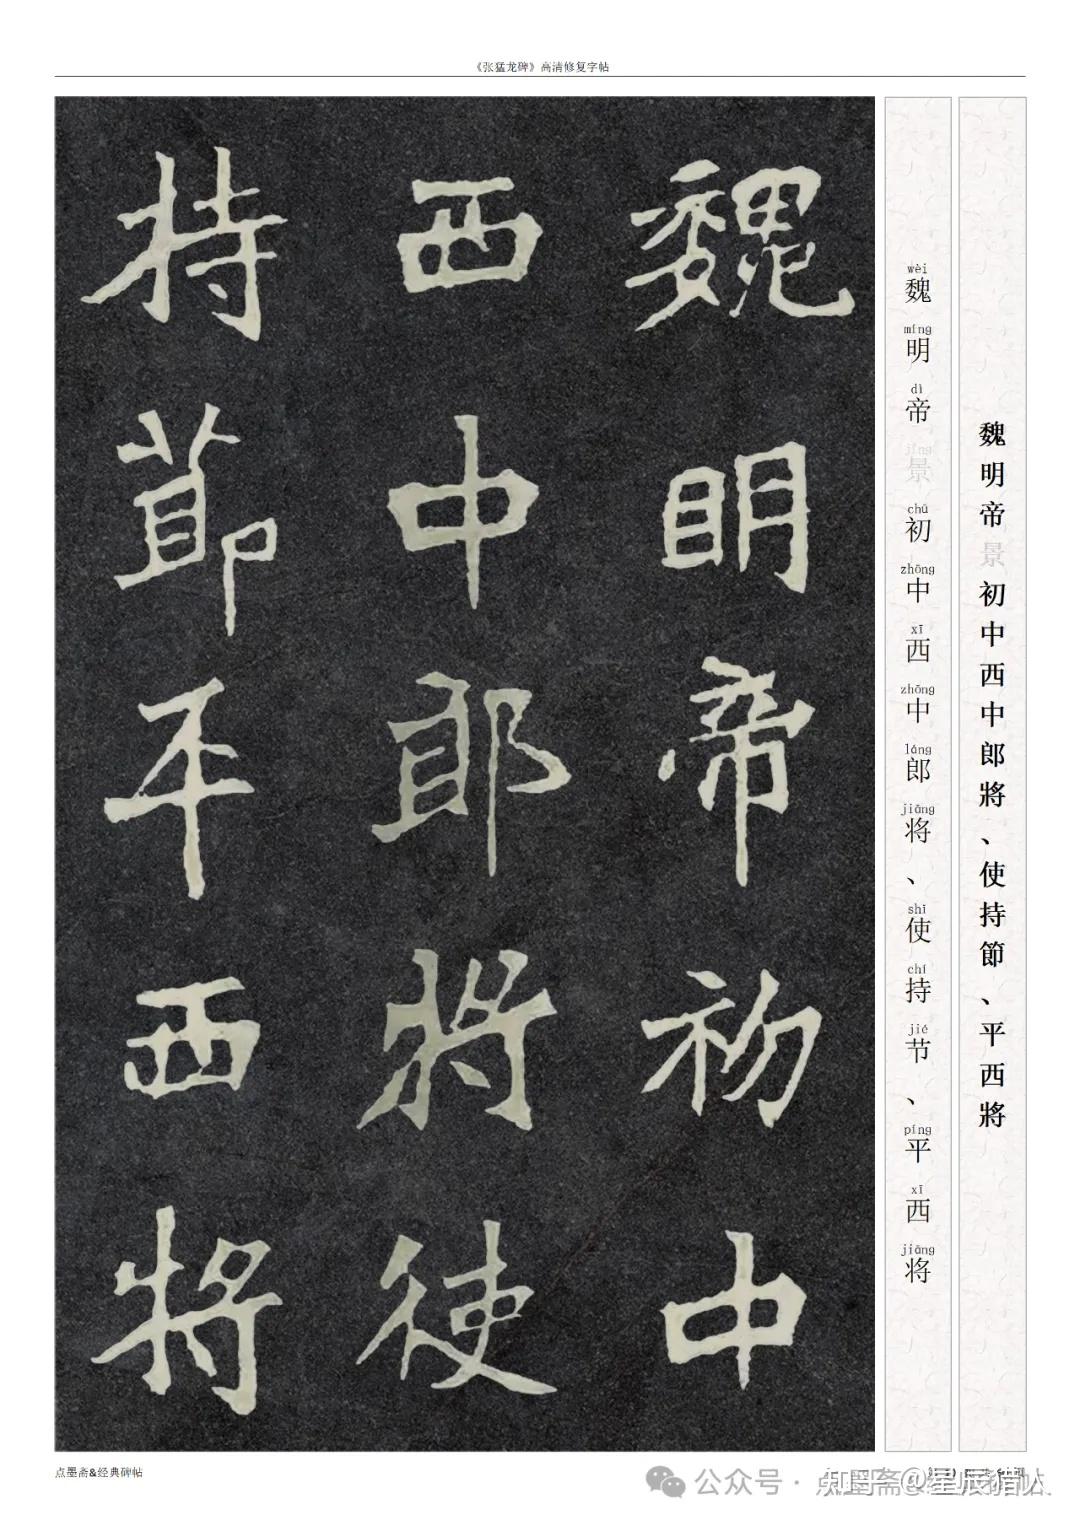 《张猛龙碑》高清修复字帖
魏明帝景初中西中郎將、使持節、平西將
wèi míng dì jǐng chū zhōng xī zhōng láng jiāng shǐ chí jié píng xī jiāng
魏明帝景初中西中郎将、使持节、平西将
魏明帝初中
西中郎將使
持節平西將
点墨斋&经典碑帖
公众号 ·
知乎 @星辰猎人